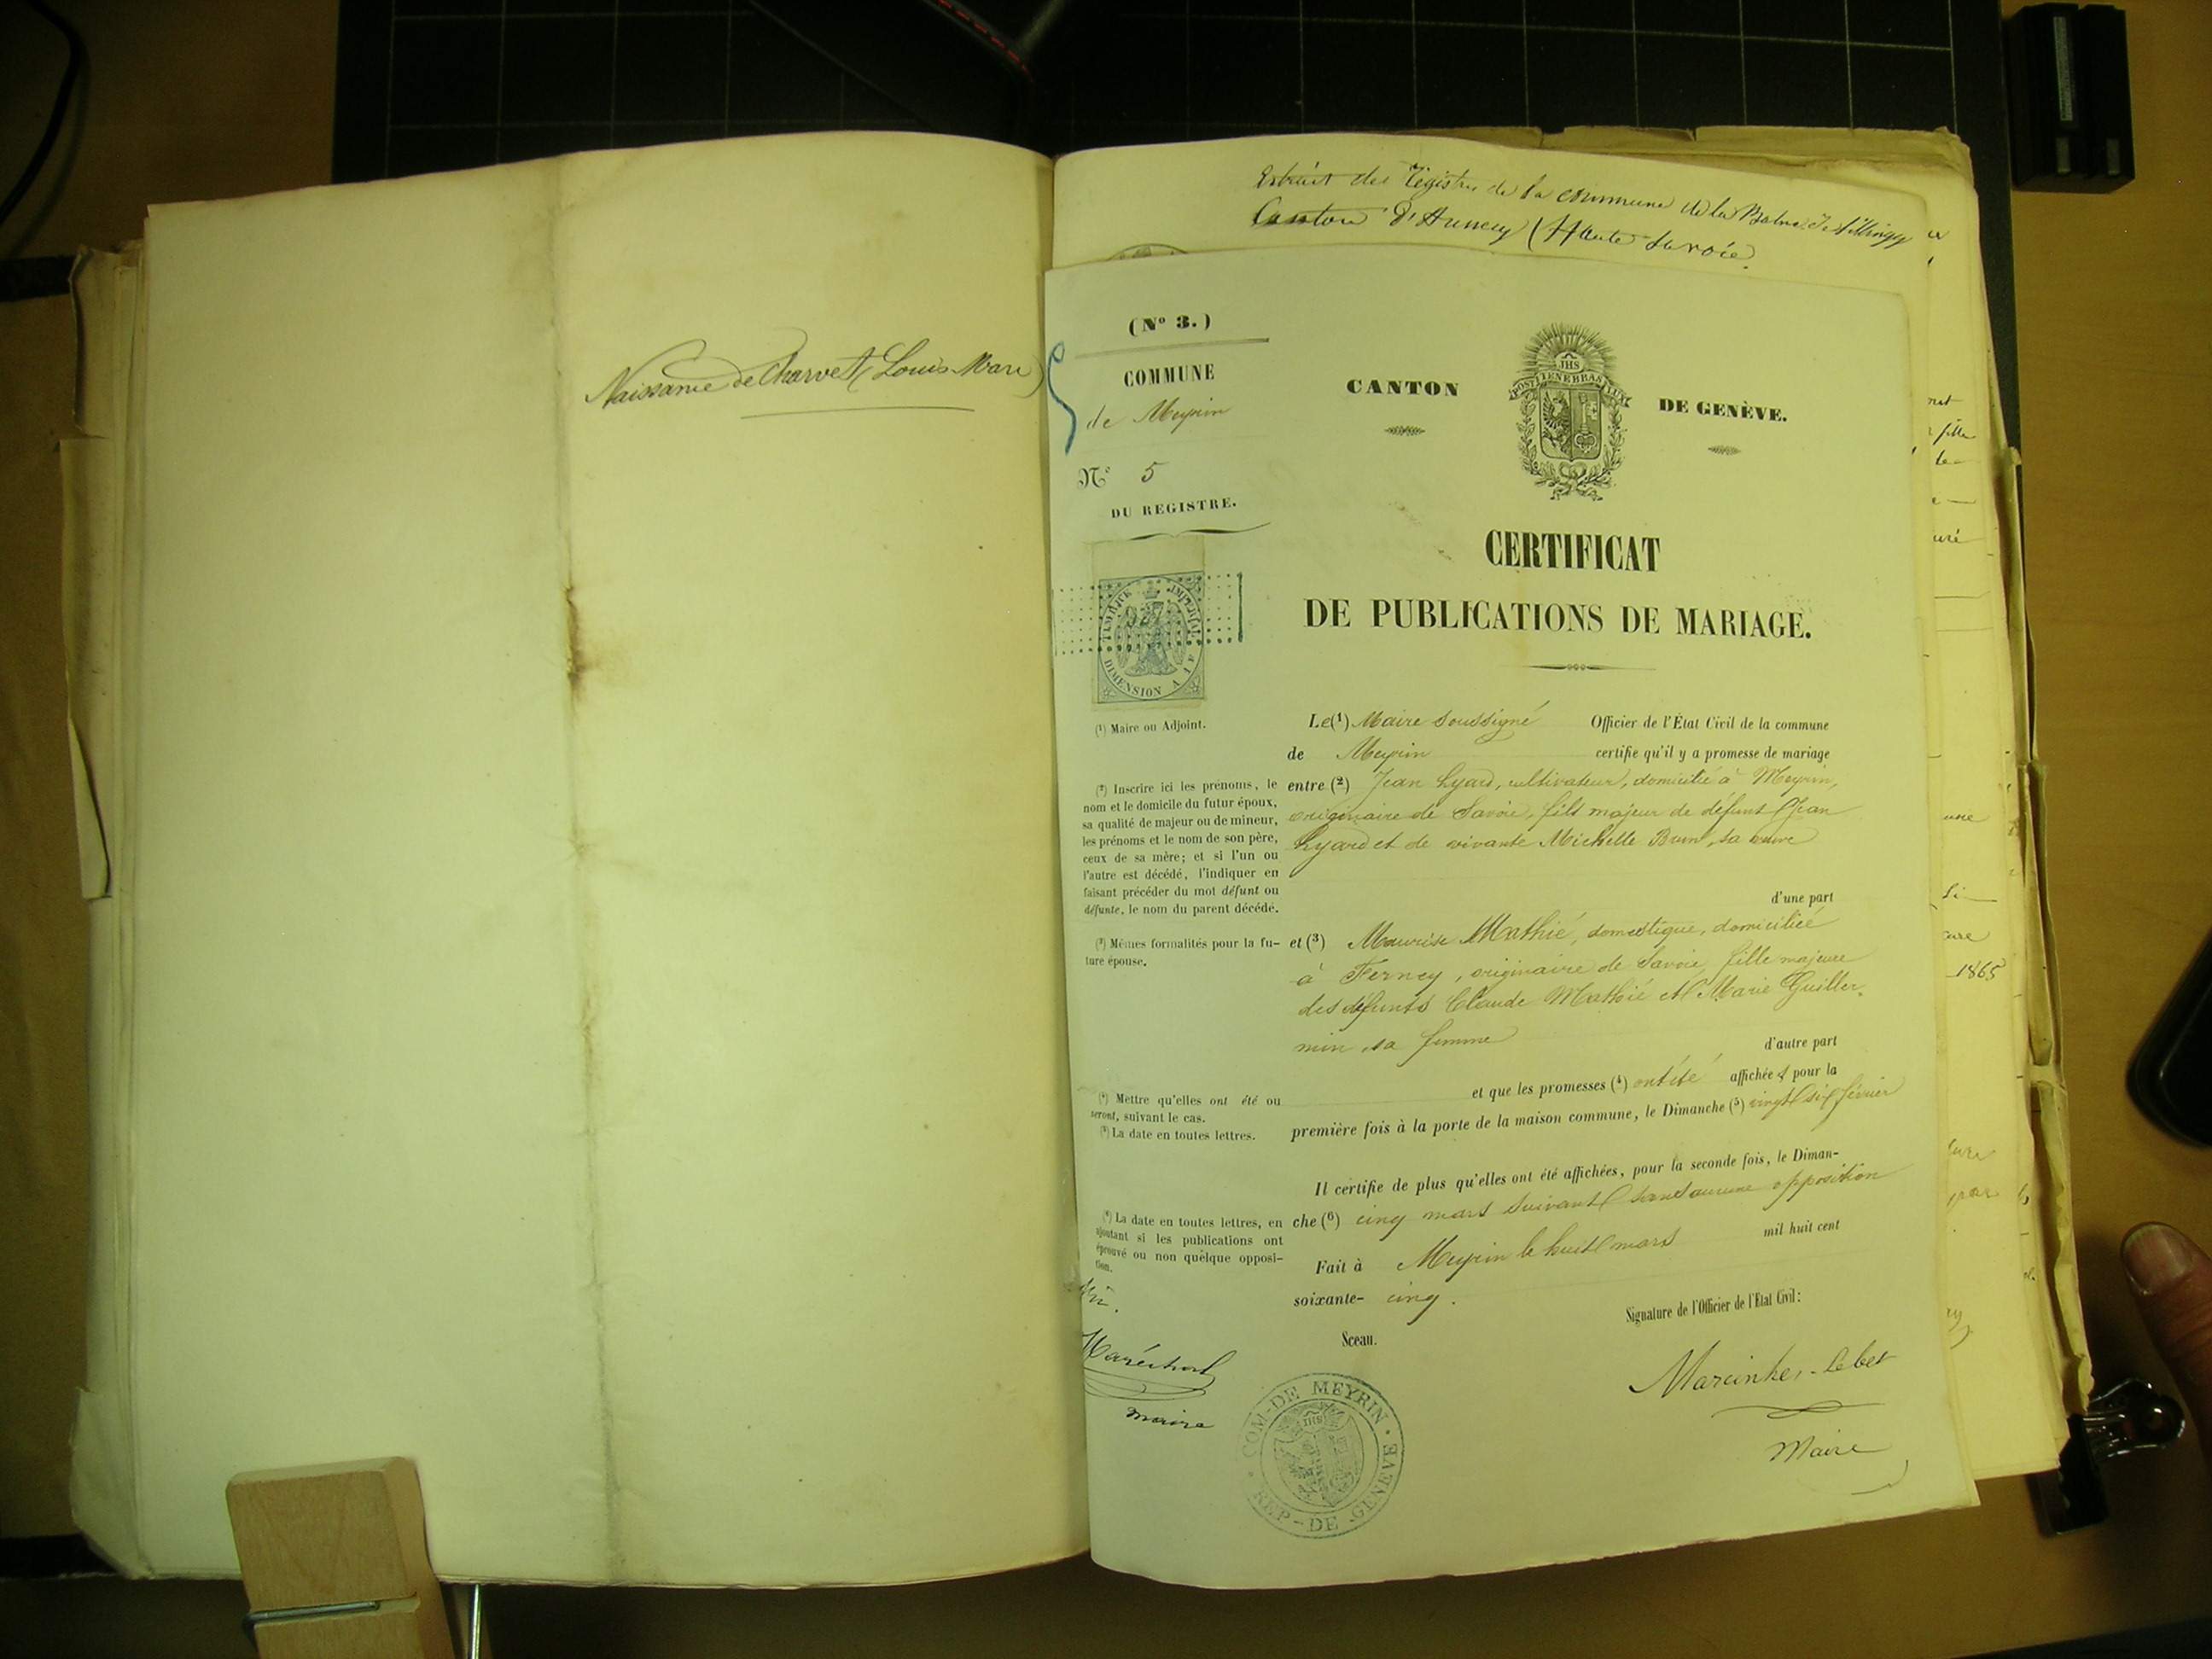 Naissance de Charvet (Louis Marc)
Extrait des Registres de la commune de la Balme de Sillingy
Canton d'Annecy (Haute Savoie)
(Nº 3.)
COMMUNE
de Meyrin
Nº 5
DU REGISTRE.
CANTON DE GENÈVE.
JHS
POST TENEBRAS LUX
CERTIFICAT
DE PUBLICATIONS DE MARIAGE.
TIMBRE IMPERIAL
DIMENSION A 1 F
(1) Maire ou Adjoint.
Le (1) Maire soussigné Officier de l'État Civil de la commune
de Meyrin certifie qu'il y a promesse de mariage
(2) Inscrire ici les prénoms, le
nom et le domicile du futur époux,
sa qualité de majeur ou de mineur,
les prénoms et le nom de son père,
ceux de sa mère; et si l'un ou
l'autre est décédé, l'indiquer en
faisant précéder du mot défunt ou
défunte, le nom du parent décédé.
entre (2) Jean Lyard, cultivateur, domicilié à Meyrin,
originaire de Savoie, fils majeur de défunt Jean
Lyard et de vivante Michelle sa veuve
d'une part
(3) Mêmes formalités pour la fu-
ture épouse.
et (3) Maurise Mathié, domestique, domiciliée
à Ferney, originaire de Savoie, fille majeure
des défunts Claude Mathié et Marie Guiller-
min sa femme
d'autre part
(4) Mettre qu'elles ont été ou
seront, suivant le cas.
(5) La date en toutes lettres.
et que les promesses (4) ont été affichées pour la
première fois à la porte de la maison commune, le Dimanche (5) vingt six février
Il certifie de plus qu'elles ont été affichées, pour la seconde fois, le Diman-
che (6) cinq mars suivant sans aucune opposition
(6) La date en toutes lettres, en
ajoutant si les publications ont
éprouvé ou non quelque opposi-
tion.
Fait à Meyrin le huit mars mil huit cent
soixante- cinq.
Sceau.
Signature de l'Officier de l'État Civil:
Maréchal
maire
COM-DE MEYRIN
REP-DE GENEVE
JHS
Maire
1865